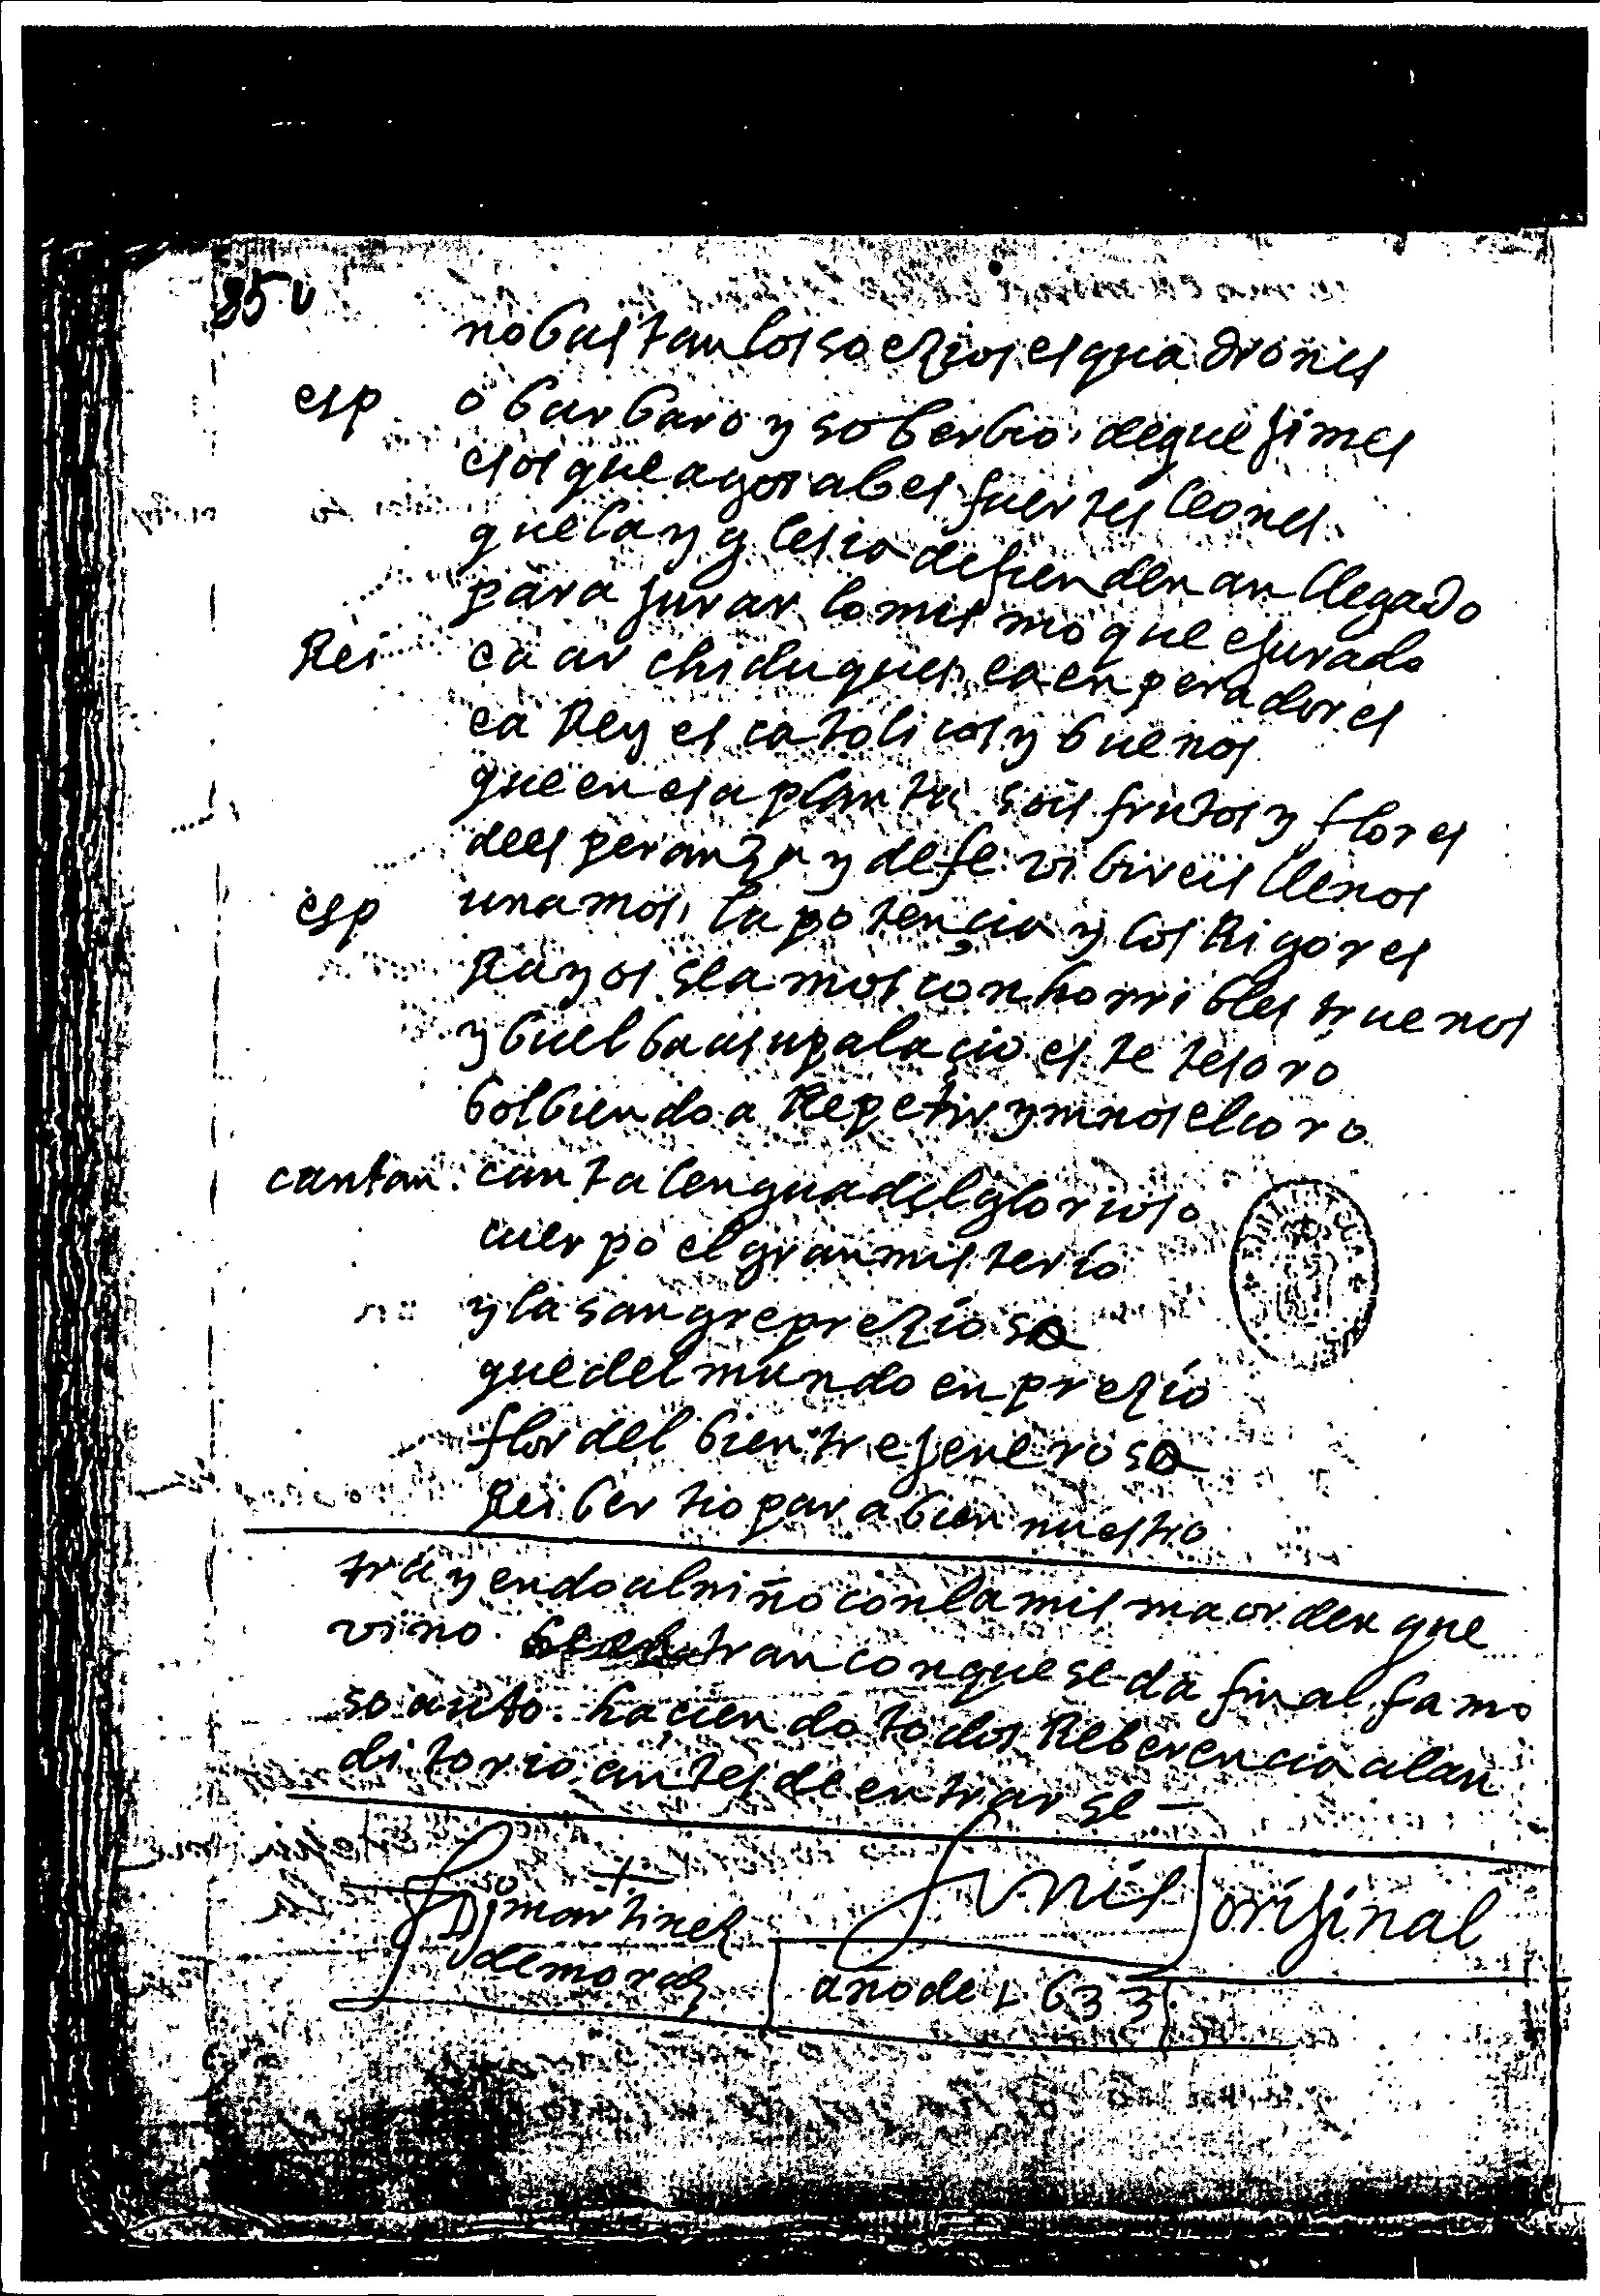 85 v
no bastan los soezios esquadrones
esp o barbaro y soberbio. de que jimes
esos que agora bes fuertes leones
que la yglesia defienden an llegado
para jurar lo mismo que e jurado
Rei ea archiduques, ea enperadores
ea Reyes catolicos y buenos
que en esa planta sois frutos y flores
de esperanza y de fe vibireis llenos
esp unamos, la potencia y los Rigores
Rayos seamos con horribles truenos
y buelba a su palaçio este tesoro
bolbiendo a Repetir ymnos el coro
cantan. canta lengua del glorioso
cuerpo el gran misterio
y la sangre preziosa
que del mundo en prezio
flor del bientre jenerosa
Rei bertio para bien nuestro
trayendo al niño con la misma orden que
vino. se entran con que se da fin al famo
so auto. haçiendo todos Reberencia al au
ditorio. antes de entrarse —
so
martinez
de mora
finis
orijinal
año de 1633